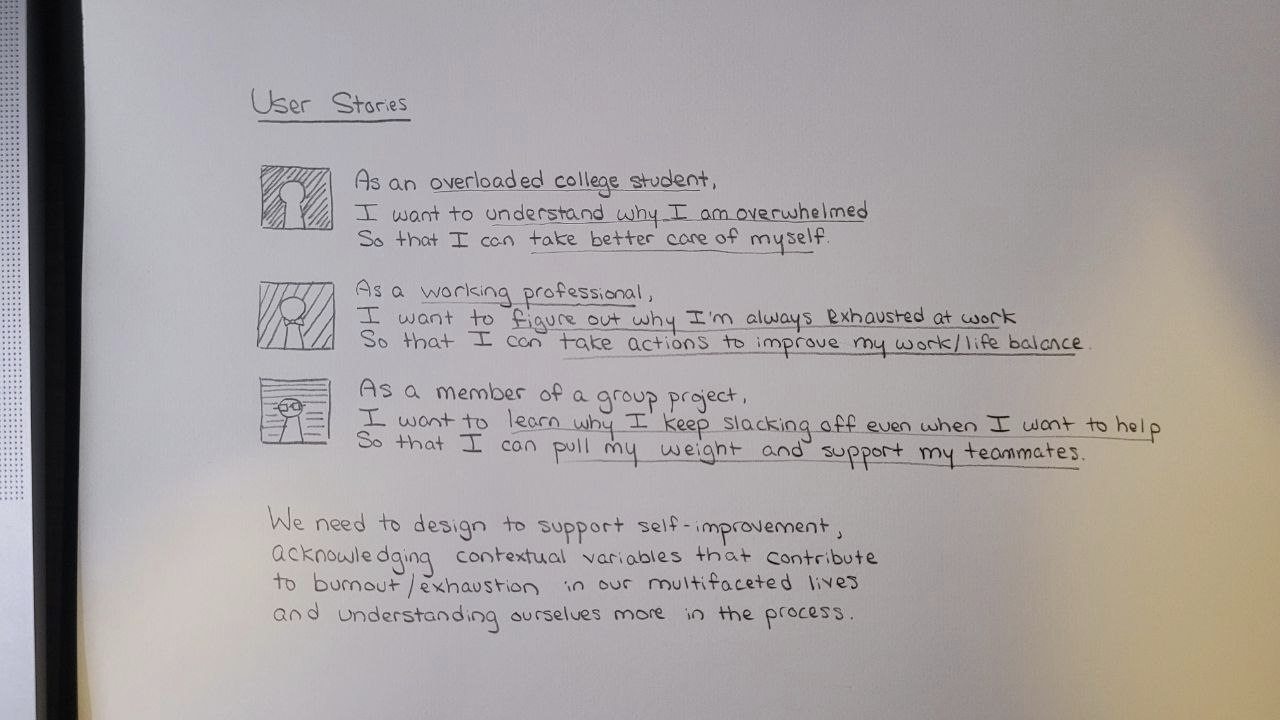 User Stories
As an overloaded college student,
I want to understand why I am overwhelmed
So that I can take better care of myself.
As a working professional,
I want to figure out why I'm always exhausted at work
So that I can take actions to improve my work/life balance.
As a member of a group project,
I want to learn why I keep slacking off even when I want to help
So that I can pull my weight and support my teammates.
We need to design to support self-improvement,
acknowledging contextual variables that contribute
to burnout/exhaustion in our multifaceted lives
and understanding ourselves more in the process.